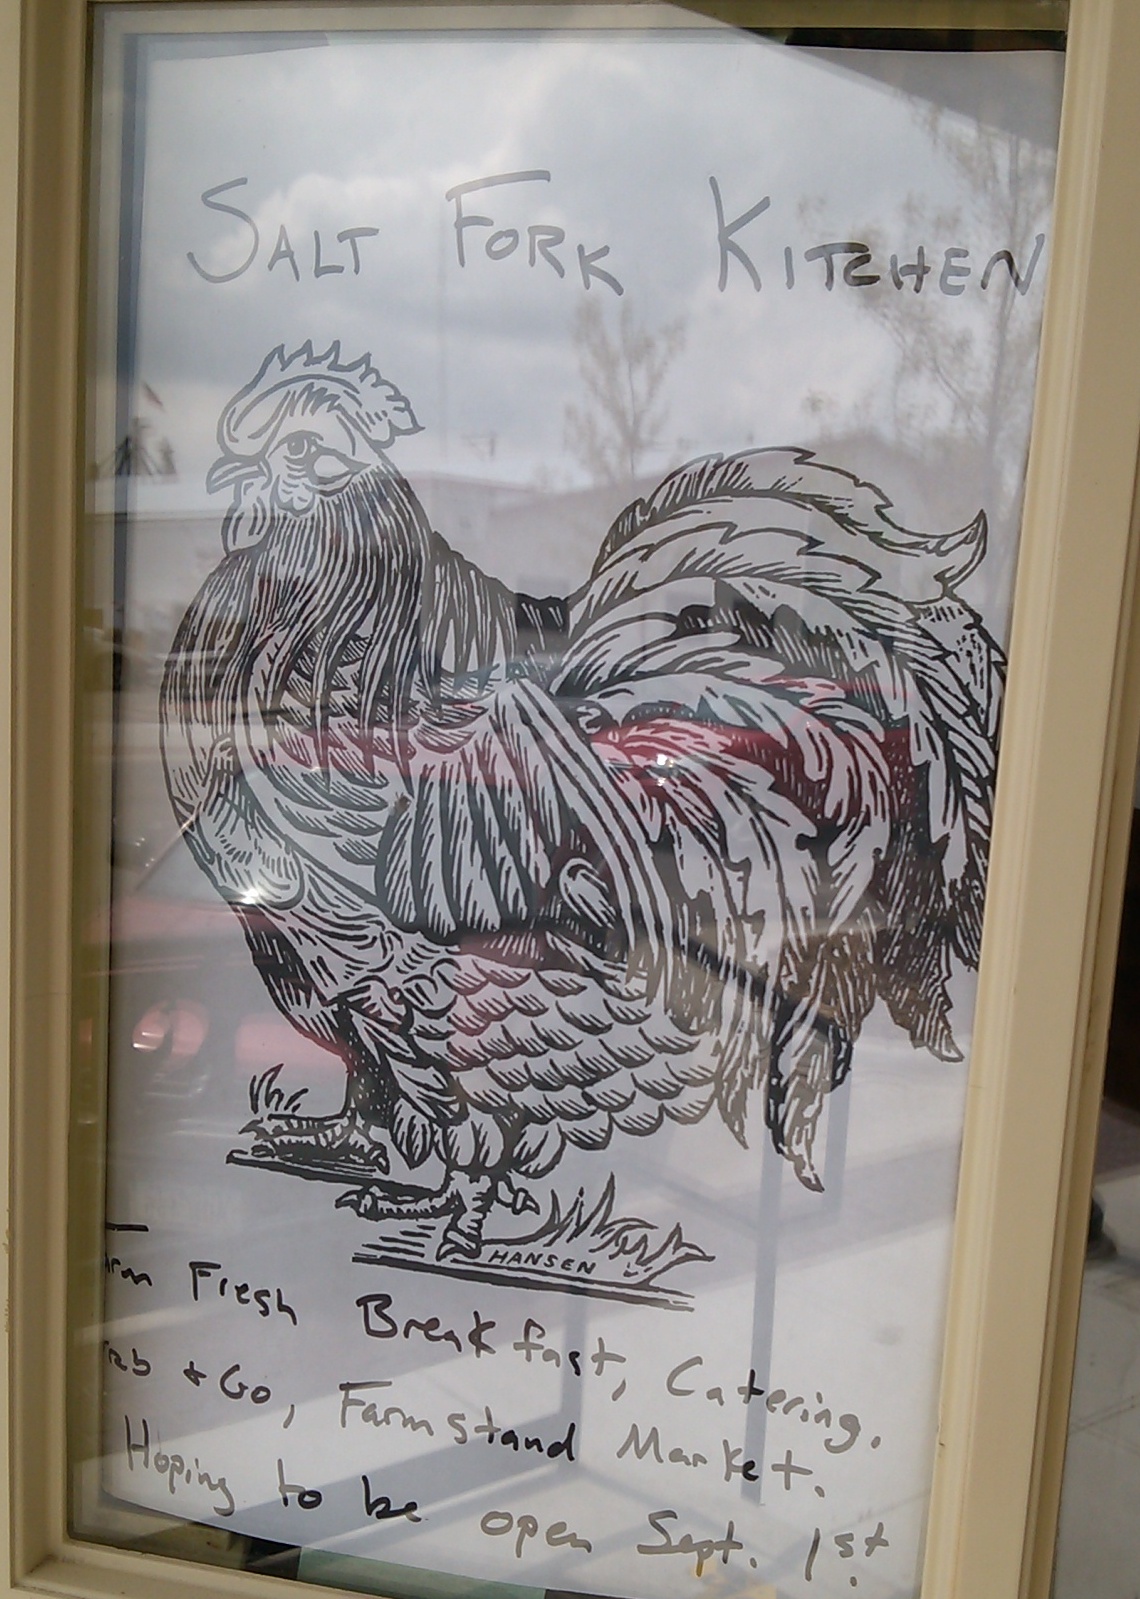 SALT FORK KITCHEN
HANSEN
Farm Fresh Breakfast, Catering.
Grab & Go, Farmstand Market.
Hoping to be open Sept. 1st.